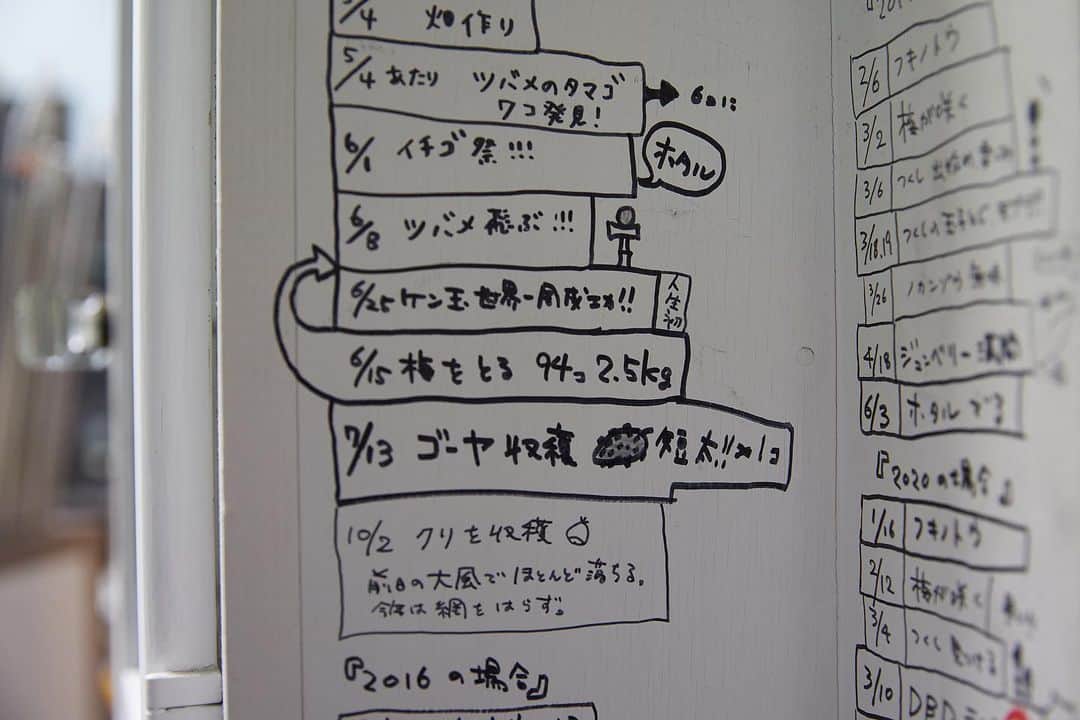 5/4 畑作り
5/4 あたり ツバメのタマゴ
ワコ発見!
6コに
6/1 イチゴ祭!!!
ホタル
6/8 ツバメ飛ぶ!!!
6/25 ケン玉世界一周成功!!
人生初
6/15 梅をとる 94コ 2.5kg
7/13 ゴーヤ収穫 短太!!×1コ
10/2 クリを収穫
前日の大風でほとんど落ちる。
今年は網をはらず。
『2016の場合』
2/6 フキノトウ
3/2 梅が咲く
3/6 つくし
3/18.19 つくしの玉子とじ
3/26 ノカンゾウ
4/18 ジューンベリー
6/3 ホタルでる
『2020の場合』
1/16 フキノトウ
2/12 梅が咲く
3/4 つくし見つける
3/10 DBD